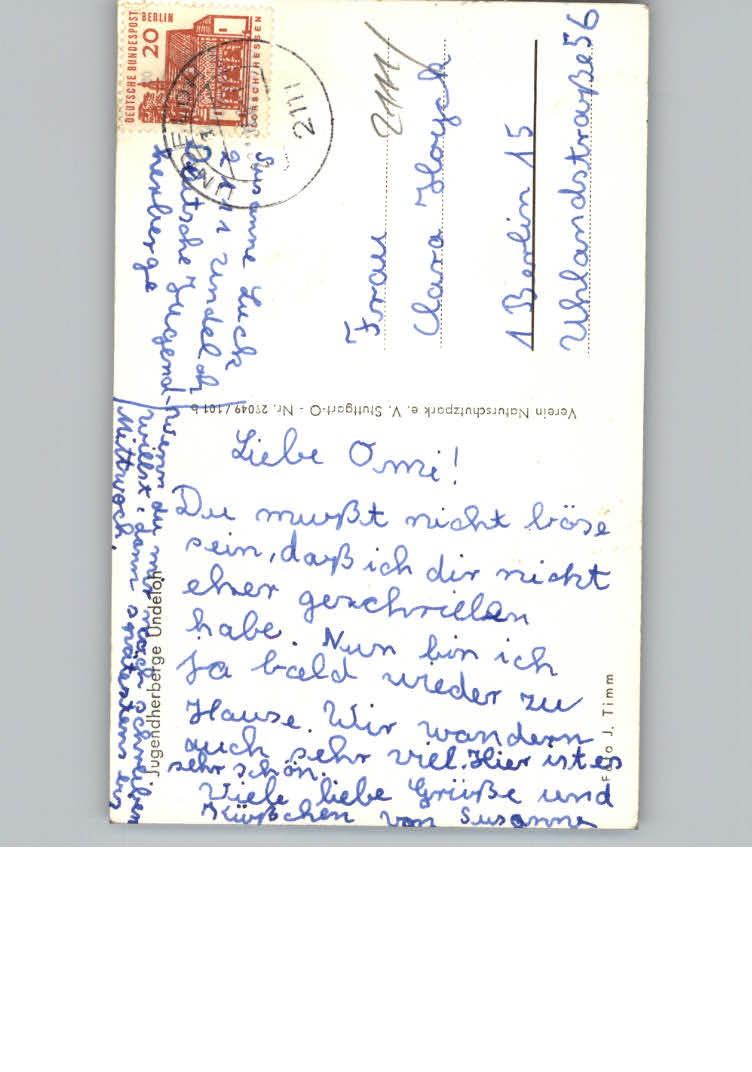 Liebe Omi!
Du mußt nicht böse
sein, daß ich dir nicht
eher geschrieben
habe. Nun bin ich
ja bald wieder zu
Hause. Wir wandern
auch sehr viel. Hier ist es
sehr schön.
Viele liebe Grüße und
Küßchen von Susanne
wenn du mir noch schreiben
willst, dann spätestens bis
Mittwoch.
Jugendherberge Undeloh
Foto J. Timm
Verein Naturschutzpark e. V. Stuttgart-O - Nr. 27049/101 b
Susanne Luck
2111 Undeloh
Deutsche Jugend-
herberge
DEUTSCHE BUNDESPOST
BERLIN
20
LORSCH/HESSEN
UNDELOH
2111
2111
Frau
Clara
1 Berlin 15
Uhlandstraße 56